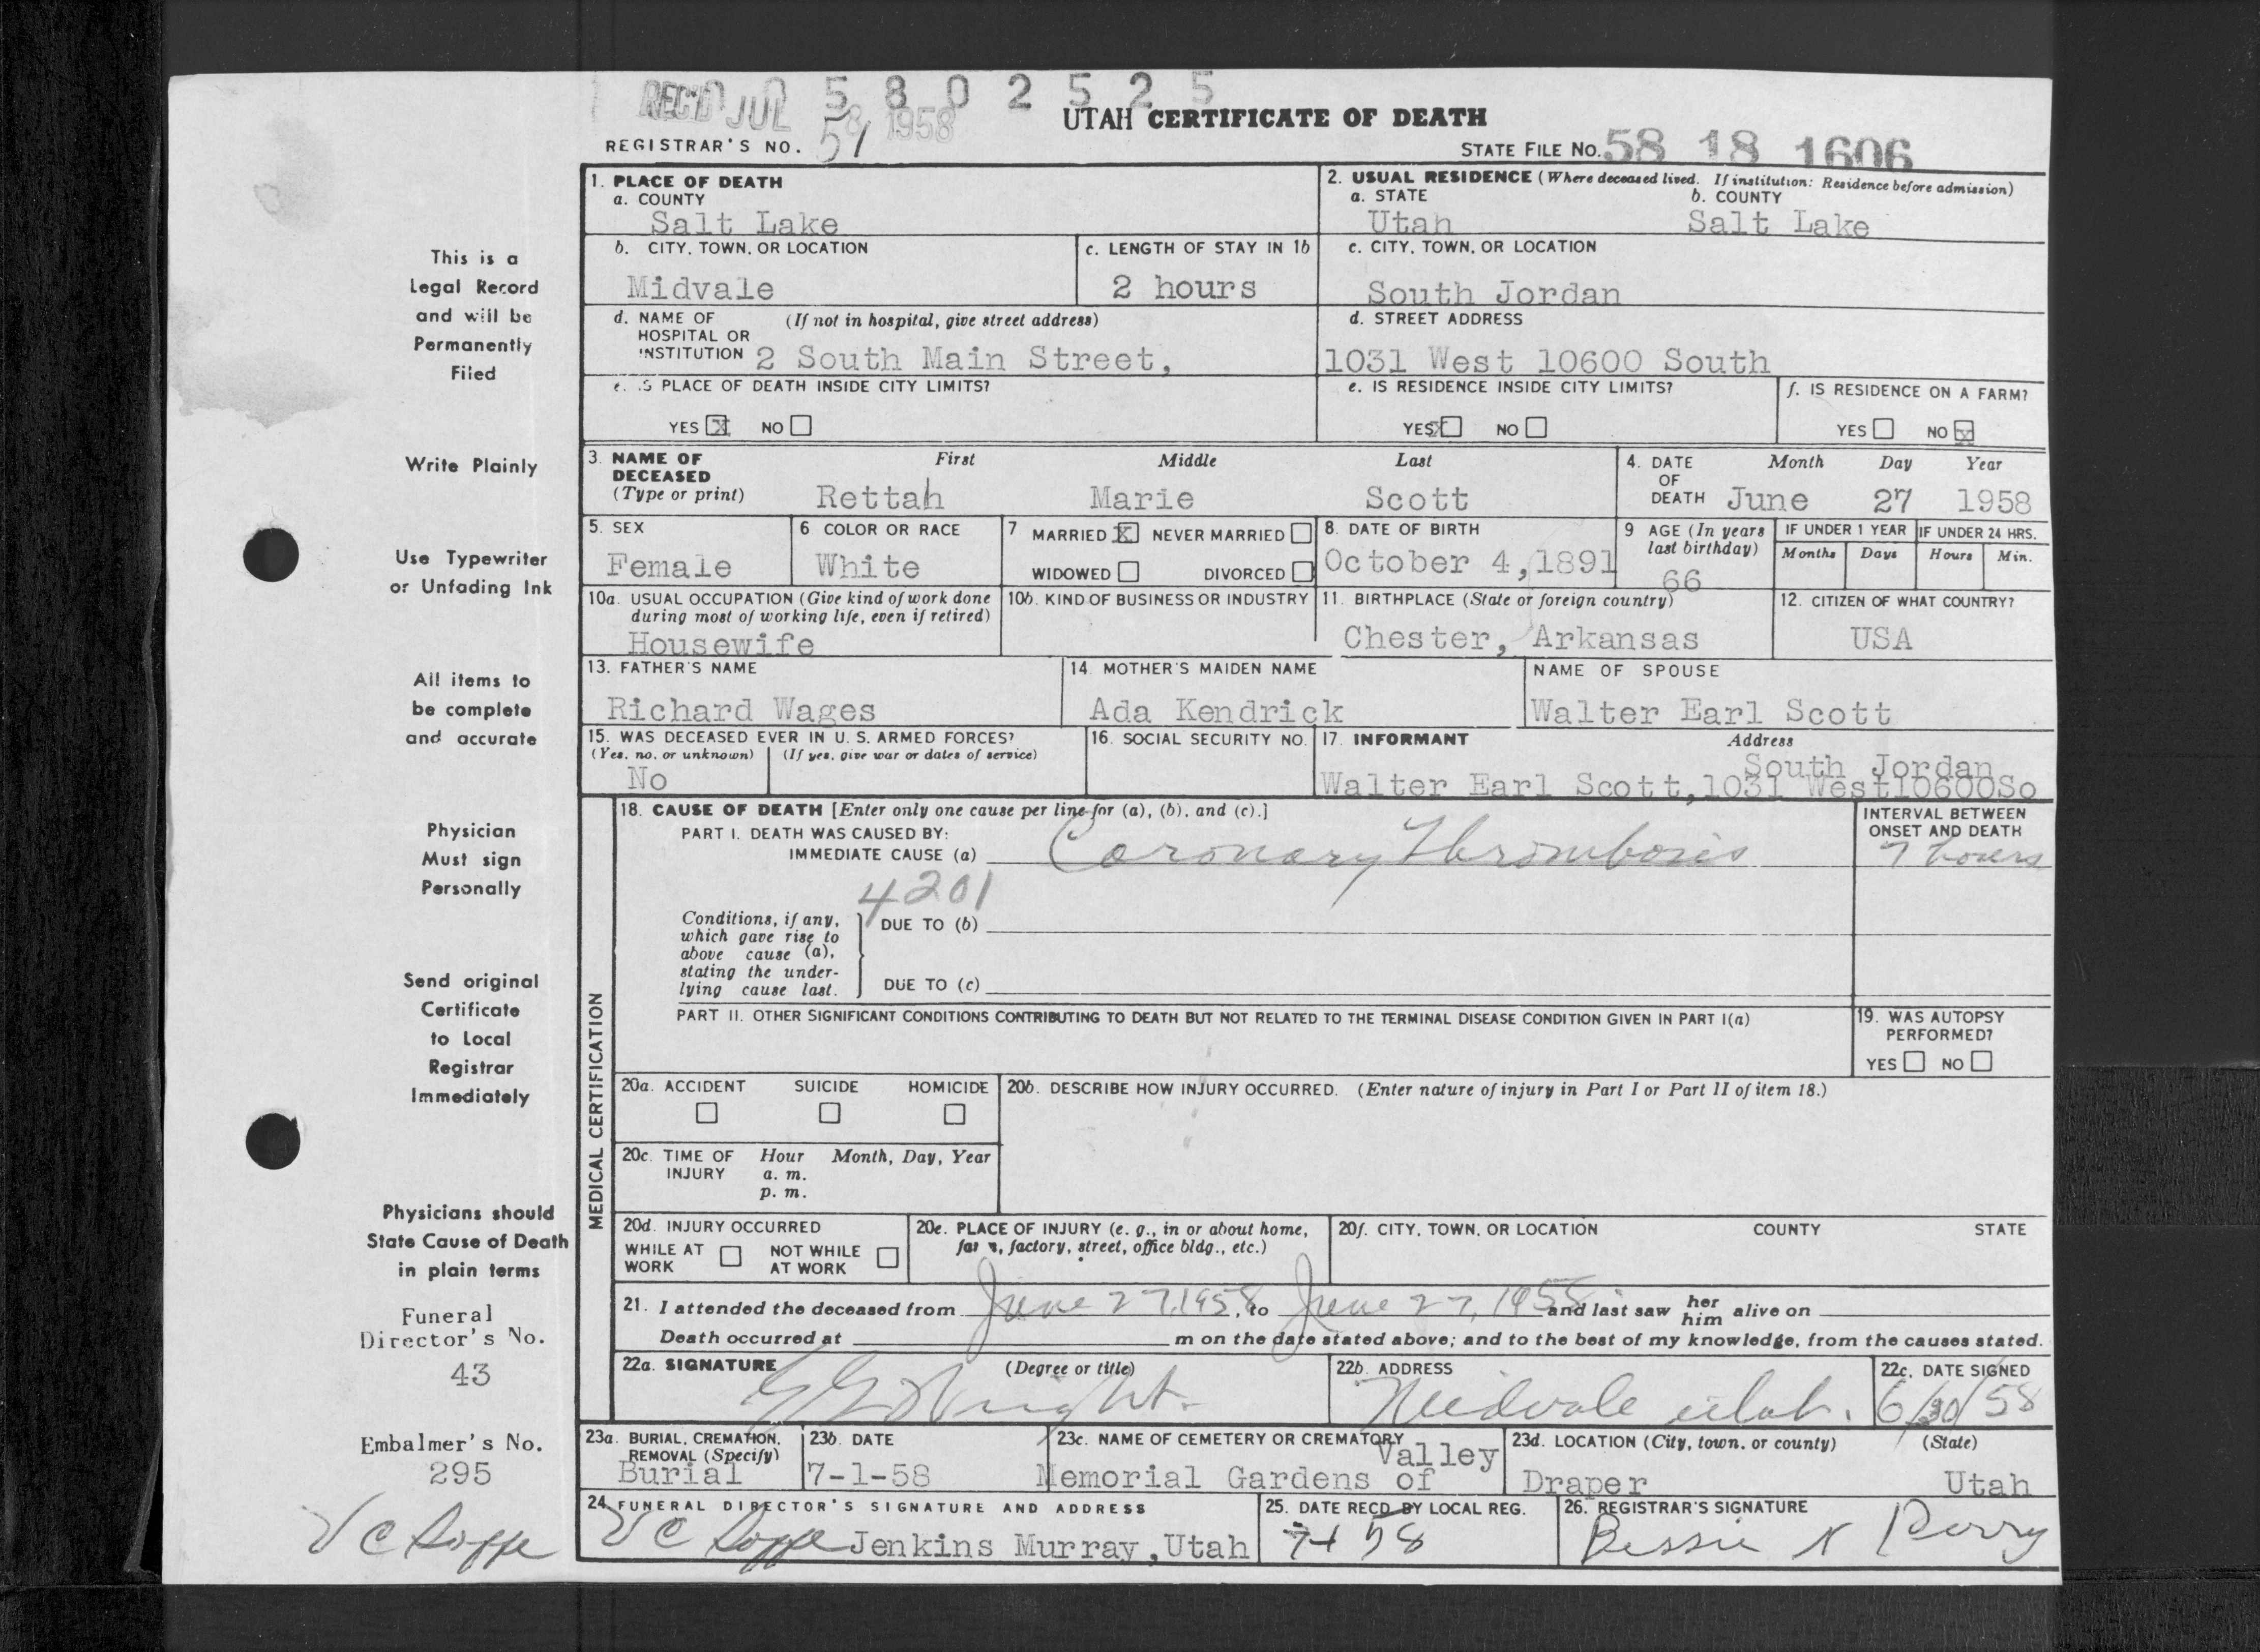 REC'D JUL 8 1958
5802525
UTAH CERTIFICATE OF DEATH
REGISTRAR'S NO. 51
STATE FILE NO. 58 18 1606
This is a
Legal Record
and will be
Permanently
Filed
Write Plainly
Use Typewriter
or Unfading Ink
All items to
be complete
and accurate
Physician
Must sign
Personally
Send original
Certificate
to Local
Registrar
Immediately
Physicians should
State Cause of Death
in plain terms
Funeral
Director's No.
43
Embalmer's No.
295
1. PLACE OF DEATH
a. COUNTY
Salt Lake
2. USUAL RESIDENCE (Where deceased lived. If institution: Residence before admission)
a. STATE b. COUNTY
Utah Salt Lake
b. CITY, TOWN, OR LOCATION
Midvale
c. LENGTH OF STAY IN 1b
2 hours
c. CITY, TOWN, OR LOCATION
South Jordan
d. NAME OF (If not in hospital, give street address)
HOSPITAL OR
INSTITUTION 2 South Main Street,
d. STREET ADDRESS
1031 West 10600 South
e. IS PLACE OF DEATH INSIDE CITY LIMITS?
YES X NO
e. IS RESIDENCE INSIDE CITY LIMITS?
YES X NO
f. IS RESIDENCE ON A FARM?
YES NO X
3. NAME OF First Middle Last
DECEASED
(Type or print) Rettah Marie Scott
4. DATE Month Day Year
OF
DEATH June 27 1958
5. SEX
Female
6 COLOR OR RACE
White
7 MARRIED X NEVER MARRIED
WIDOWED DIVORCED
8. DATE OF BIRTH
October 4,1891
9 AGE (In years
last birthday)
66
IF UNDER 1 YEAR
Months Days
IF UNDER 24 HRS.
Hours Min.
10a. USUAL OCCUPATION (Give kind of work done
during most of working life, even if retired)
Housewife
10b. KIND OF BUSINESS OR INDUSTRY
11. BIRTHPLACE (State or foreign country)
Chester, Arkansas
12. CITIZEN OF WHAT COUNTRY?
USA
13. FATHER'S NAME
Richard Wages
14 MOTHER'S MAIDEN NAME
Ada Kendrick
NAME OF SPOUSE
Walter Earl Scott
15. WAS DECEASED EVER IN U. S. ARMED FORCES?
(Yes, no, or unknown) (If yes, give war or dates of service)
No
16. SOCIAL SECURITY NO.
17. INFORMANT Address
South Jordan
Walter Earl Scott,1031 West10600So
MEDICAL CERTIFICATION
18. CAUSE OF DEATH [Enter only one cause per line for (a), (b), and (c).]
PART I. DEATH WAS CAUSED BY:
IMMEDIATE CAUSE (a) Coronary Thrombosis
INTERVAL BETWEEN
ONSET AND DEATH
7 hours
4201
Conditions, if any,
which gave rise to
above cause (a),
stating the under-
lying cause last.
DUE TO (b)
DUE TO (c)
PART II. OTHER SIGNIFICANT CONDITIONS CONTRIBUTING TO DEATH BUT NOT RELATED TO THE TERMINAL DISEASE CONDITION GIVEN IN PART I(a)
19. WAS AUTOPSY
PERFORMED?
YES NO
20a. ACCIDENT SUICIDE HOMICIDE
20b. DESCRIBE HOW INJURY OCCURRED. (Enter nature of injury in Part I or Part II of item 18.)
20c. TIME OF Hour Month, Day, Year
INJURY a. m.
p. m.
20d. INJURY OCCURRED
WHILE AT NOT WHILE
WORK AT WORK
20e. PLACE OF INJURY (e. g., in or about home,
farm, factory, street, office bldg., etc.)
20f. CITY, TOWN, OR LOCATION COUNTY STATE
21. I attended the deceased from June 27,1958, to June 27, 1958 and last saw her him alive on
Death occurred at m on the date stated above; and to the best of my knowledge, from the causes stated.
22a. SIGNATURE (Degree or title)
Wright
22b. ADDRESS
Midvale Utah.
22c. DATE SIGNED
6/30/58
23a. BURIAL, CREMATION,
REMOVAL (Specify)
Burial
23b. DATE
7-1-58
23c. NAME OF CEMETERY OR CREMATORY
Valley
Memorial Gardens of
23d. LOCATION (City, town, or county) (State)
Draper Utah
24. FUNERAL DIRECTOR'S SIGNATURE AND ADDRESS
V C Jenkins Murray,Utah
25. DATE RECD BY LOCAL REG.
7-1 58
26. REGISTRAR'S SIGNATURE
Bessie N Perry